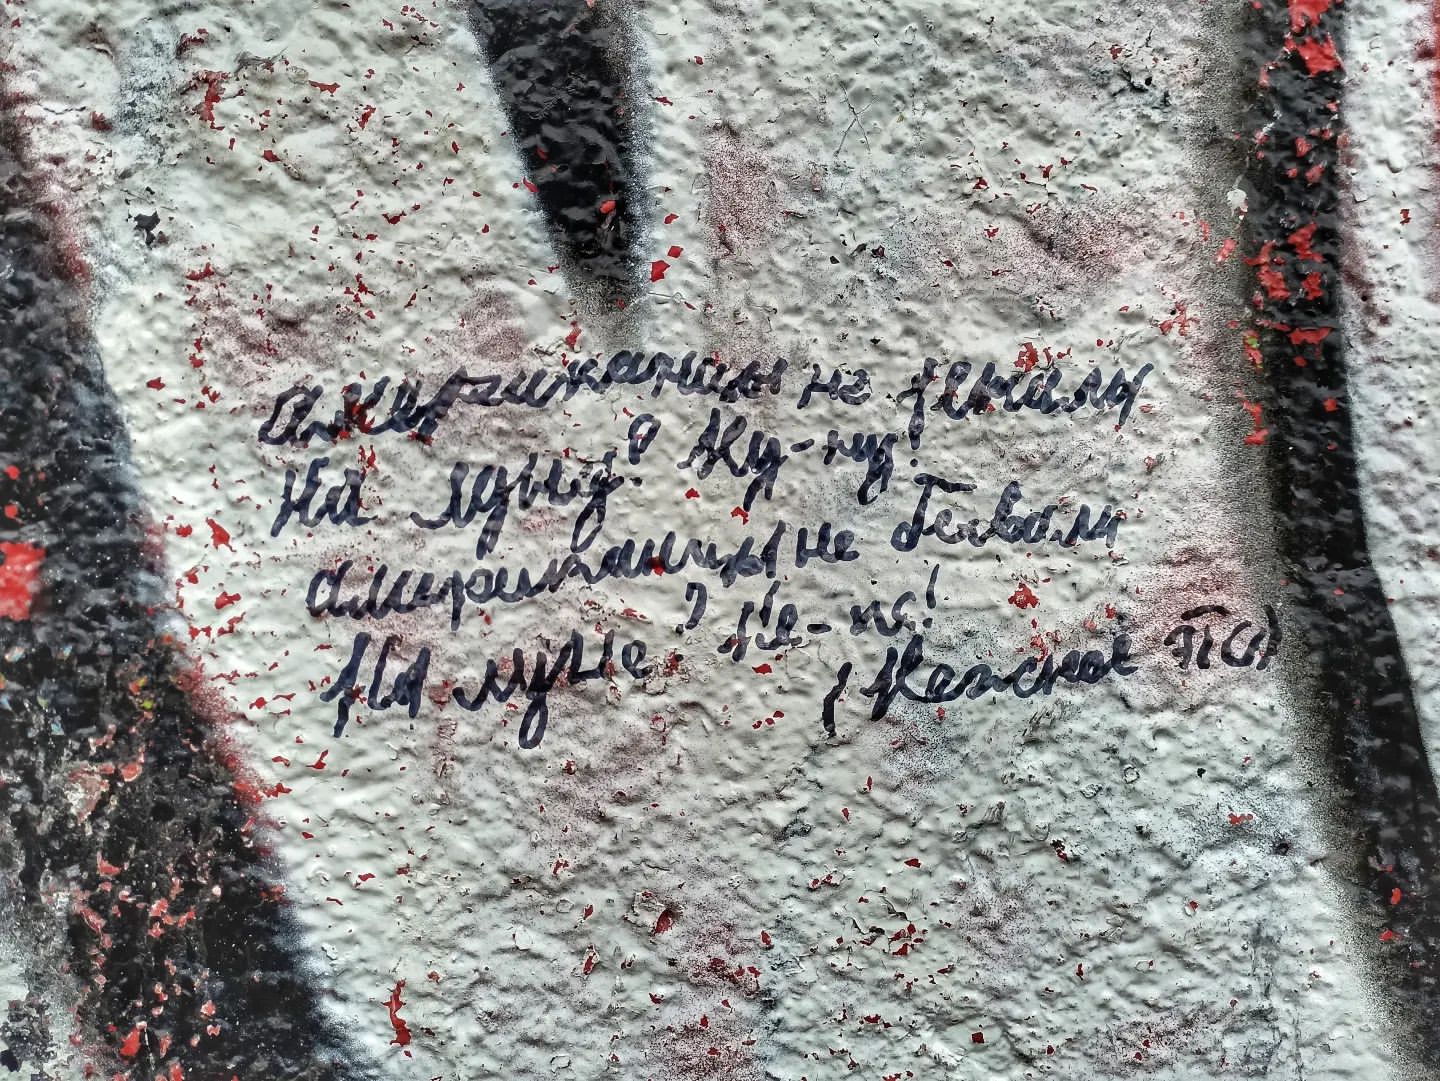 американцы не летали
на луну? Ну-ну!
американцы не бывали
На луне? Не-не!